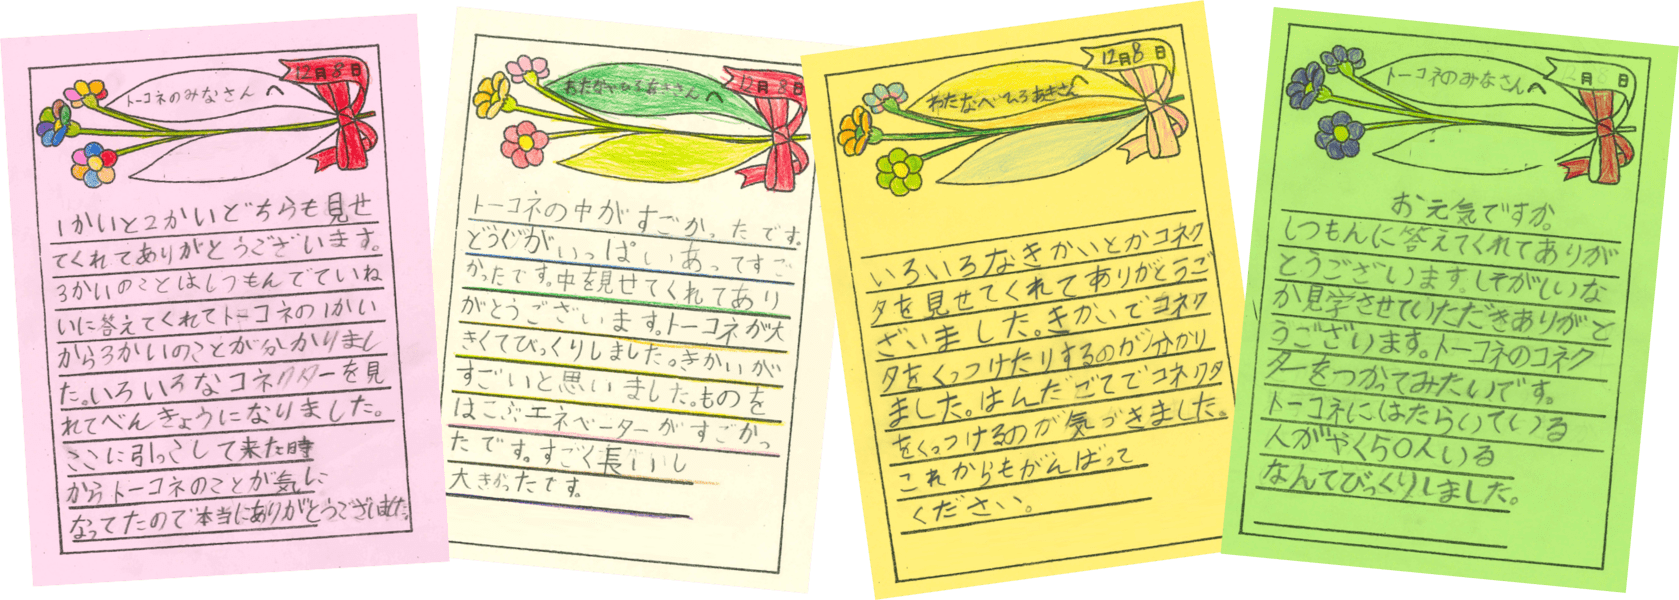 12月8日
トーコネのみなさんへ
1かいと2かいどちらも見せ
てくれてありがとうございます。
3かいのことはしつもんでていね
いに答えてくれてトーコネの1かい
から3かいのことが分かりまし
た。いろいろなコネクターを見
れてべんきょうになりました。
ここに引っこして来た時
からトーコネのことが気に
なってたので本当にありがとうございました。
12月8日
わたなべひろあきさんへ
トーコネの中がすごかったです。
どうぐがいっぱいあってすご
かったです。中を見せてくれてあり
がとうございます。トーコネが大
きくてびっくりしました。きかいが
すごいと思いました。ものを
はこぶエネベーターがすごかっ
たです。すごく長いし
大きかったです。
12月8日
わたなべひろあきさんへ
いろいろなきかいとかコネク
タを見せてくれてありがとうご
ざいました。きかいでコネク
タをくっつけたりするのが分かり
ました。はんだごてでコネクタ
をくっつけるのが気づきました。
これからもがんばって
ください。
12月8日
トーコネのみなさんへ
お元気ですか。
しつもんに答えてくれてありが
とうございます。しそがしいな
か見学させていただきありがと
うございます。トーコネのコネク
ターをつかってみたいです。
トーコネにはたらいている
人がやく50人いる
なんてびっくりしました。